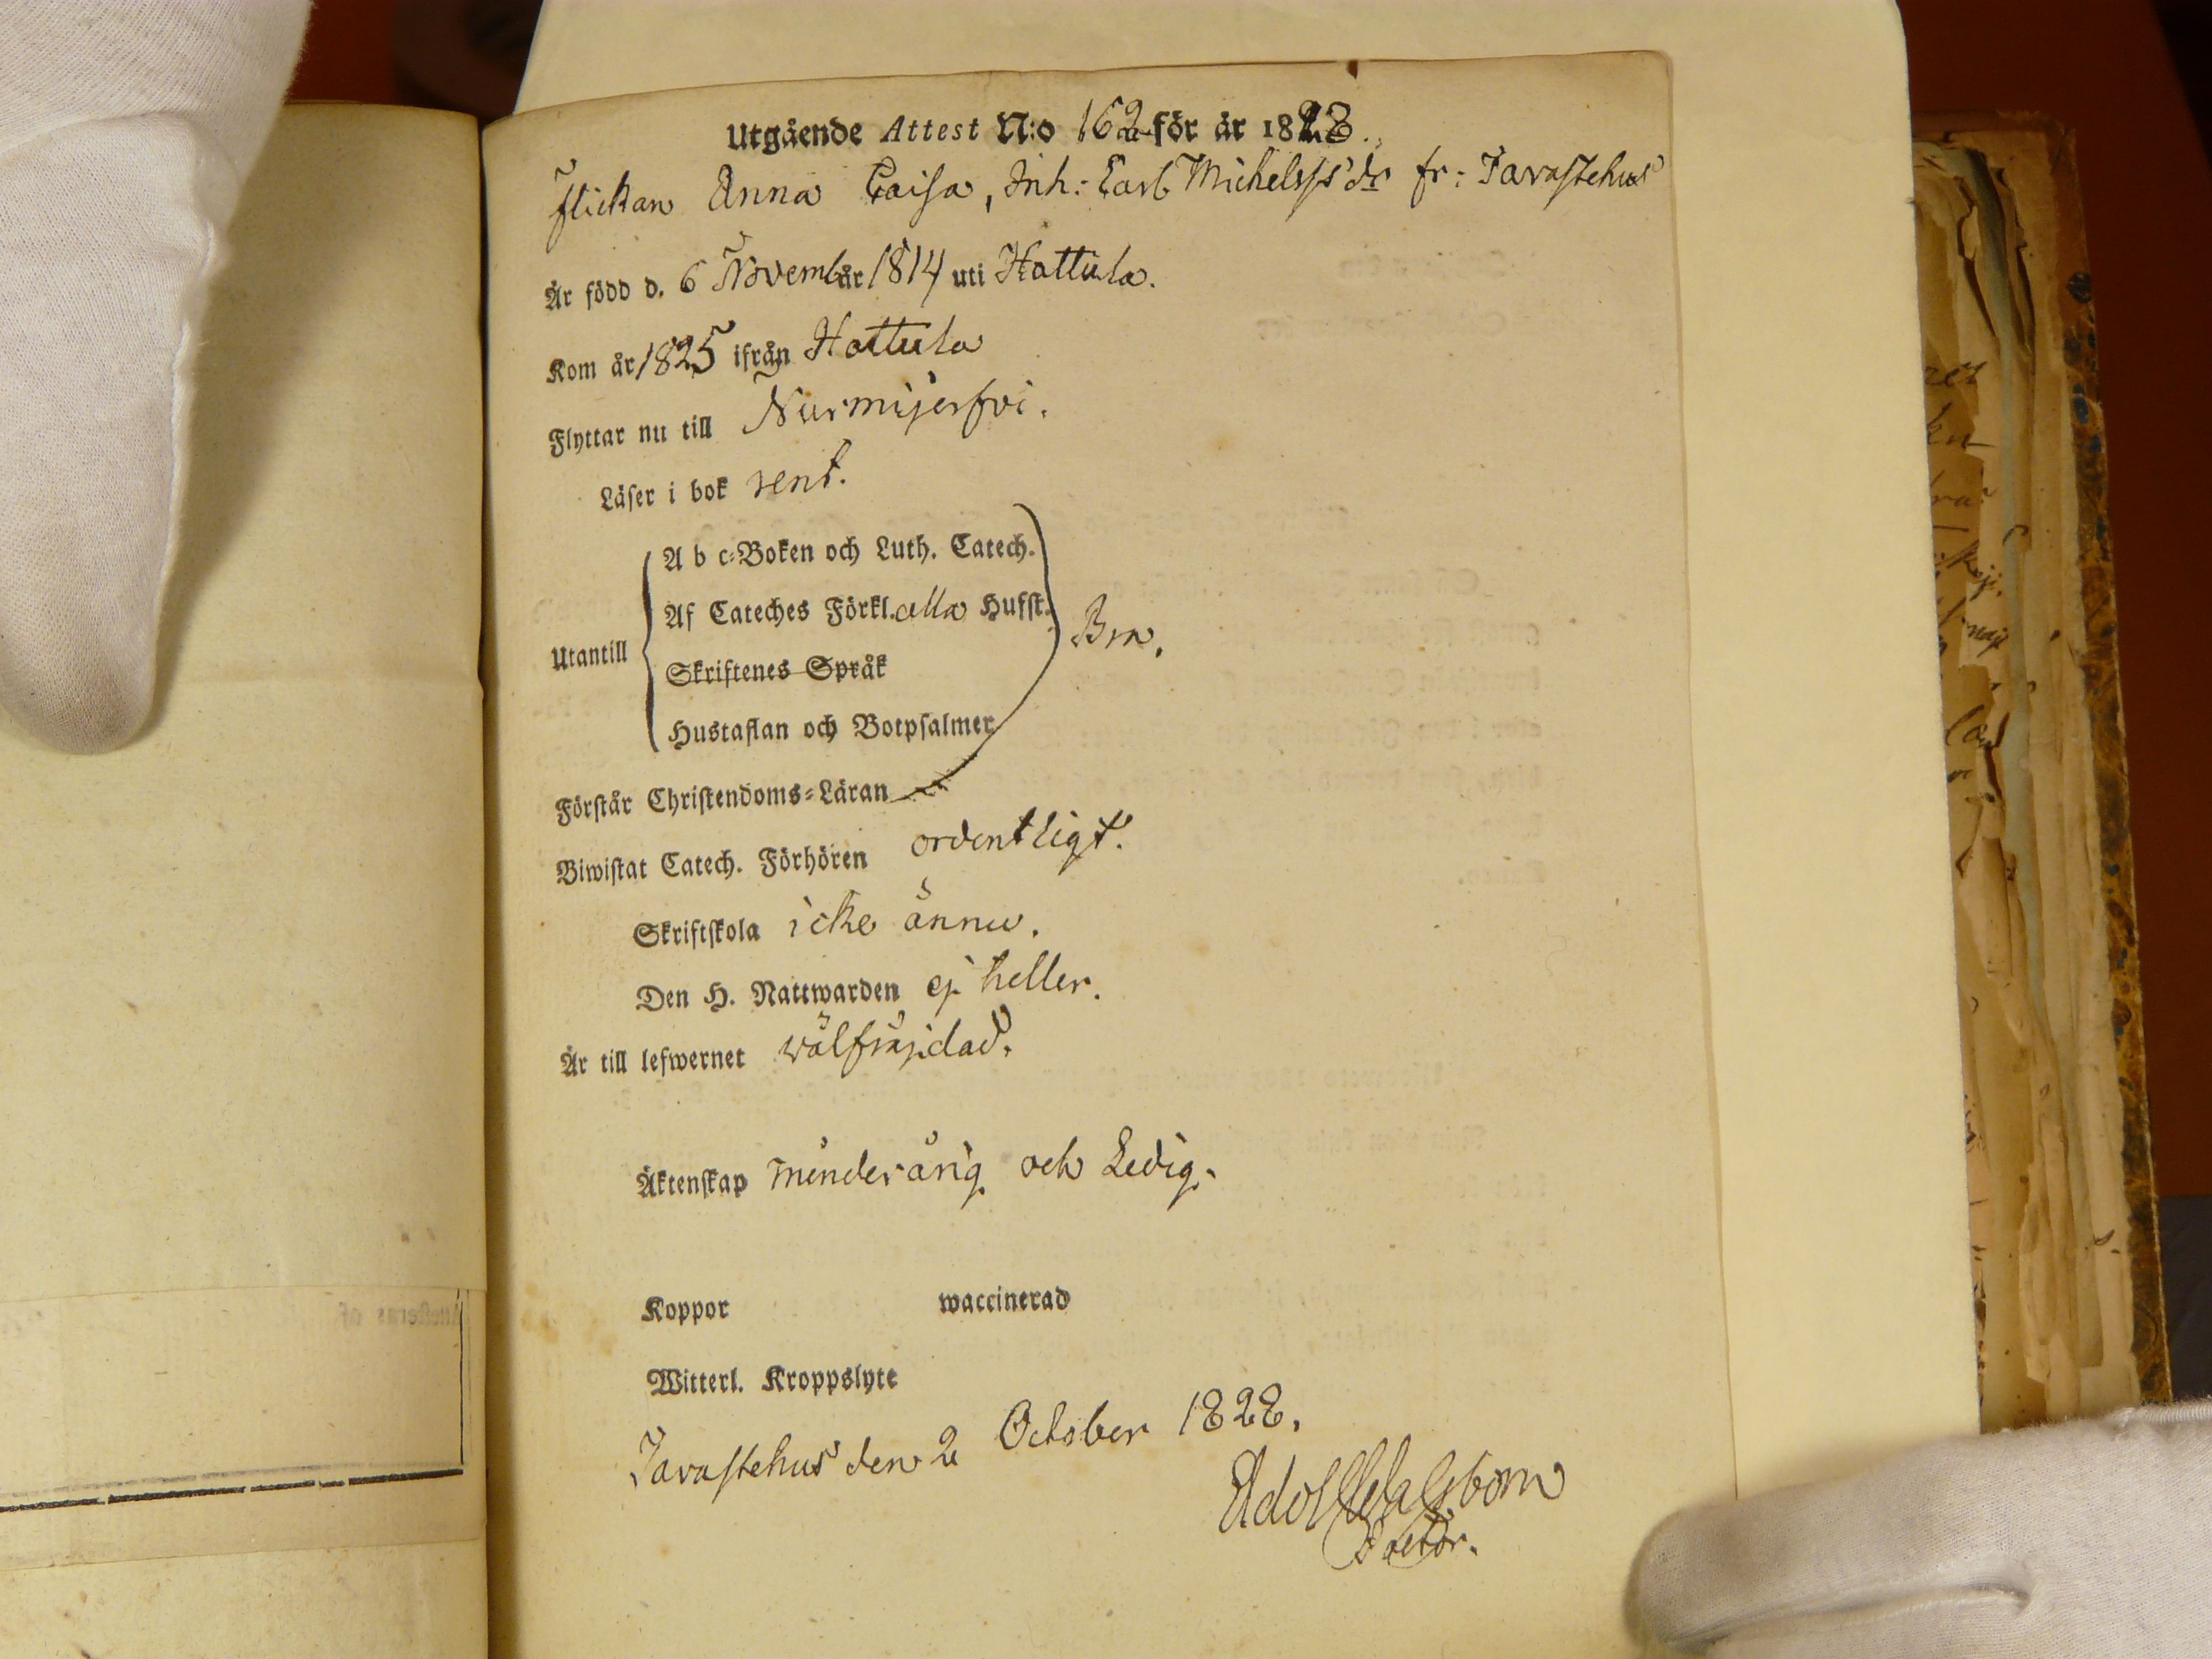 Utgående Attest N:o 162 för år 1828.
flickan Anna Caisa, Inh: Carl Michelss dr fr: Tavastehus
Är född d. 6 Novemb år 1814 uti Hattula.
Kom år 1825 ifrån Hattula
Flyttar nu till Nurmijerfvi.
Läser i bok rent.
A b c-Boken och Luth. Catech.
Af Cateches Förkl. alla Hufst.
Utantill
Bra.
Skriftenes Språk
Hustaflan och Botpsalmer
Förstår Christendoms-Läran
Biwistat Catech. Förhören ordentligt.
Skriftskola icke ännu.
Den H. Nattwarden ej heller.
Är till lefwernet wälfräjdad.
Äktenskap minderårig och Ledig.
Koppor waccinerad
Witterl. Kroppslyte
Tavastehus den 2 October 1828.
Adolf
Pastor.
Attesteras af